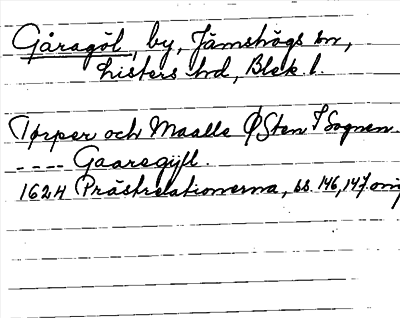 Gåragöl, by, Jämshögs sn,
Listers hd, Blek. l.
Torper och Maalle Østen I Sognen.
---- Gaaregiϕl.
1624 Prästrelationerna, ss. 146, 147 orig